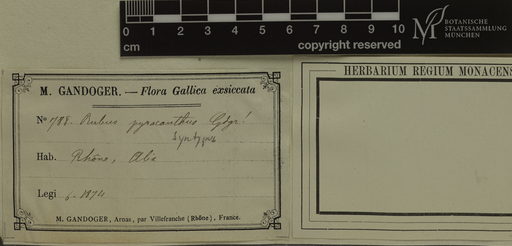 0 1 2 3 4 5 6 7 8 9 10
cm
copyright reserved
BOTANISCHE
STAATSSAMMLUNG
MÜNCHEN
M. GANDOGER. — Flora Gallica exsiccata
No 788. Rubus pyracanthus Gdgr!
Syntypus
Hab. Rhône, Alix
Legi 6-1874
M. GANDOGER, Arnas, par Villefranche (Rhône), France.
HERBARIUM REGIUM MONACENS